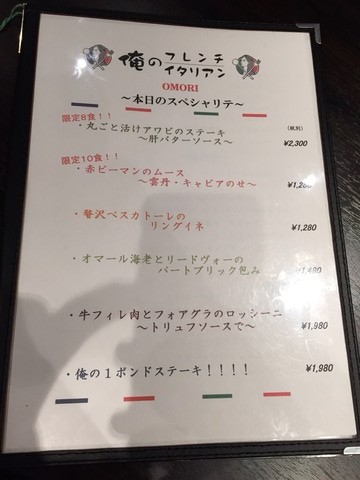 俺の フレンチ
イタリアン
OMORI
〜本日のスペシャリテ〜
限定8食！！
(税別)
・丸ごと活けアワビのステーキ
〜肝バターソース〜 ¥2,300
限定10食！！
・赤ピーマンのムース
〜雲丹・キャビアのせ〜
・贅沢ペスカトーレの
リングイネ ¥1,280
・オマール海老とリードヴォーの
パートブリック包み
・牛フィレ肉とフォアグラのロッシーニ
〜トリュフソースで〜 ¥1,980
・俺の1ポンドステーキ！！！！ ¥1,980